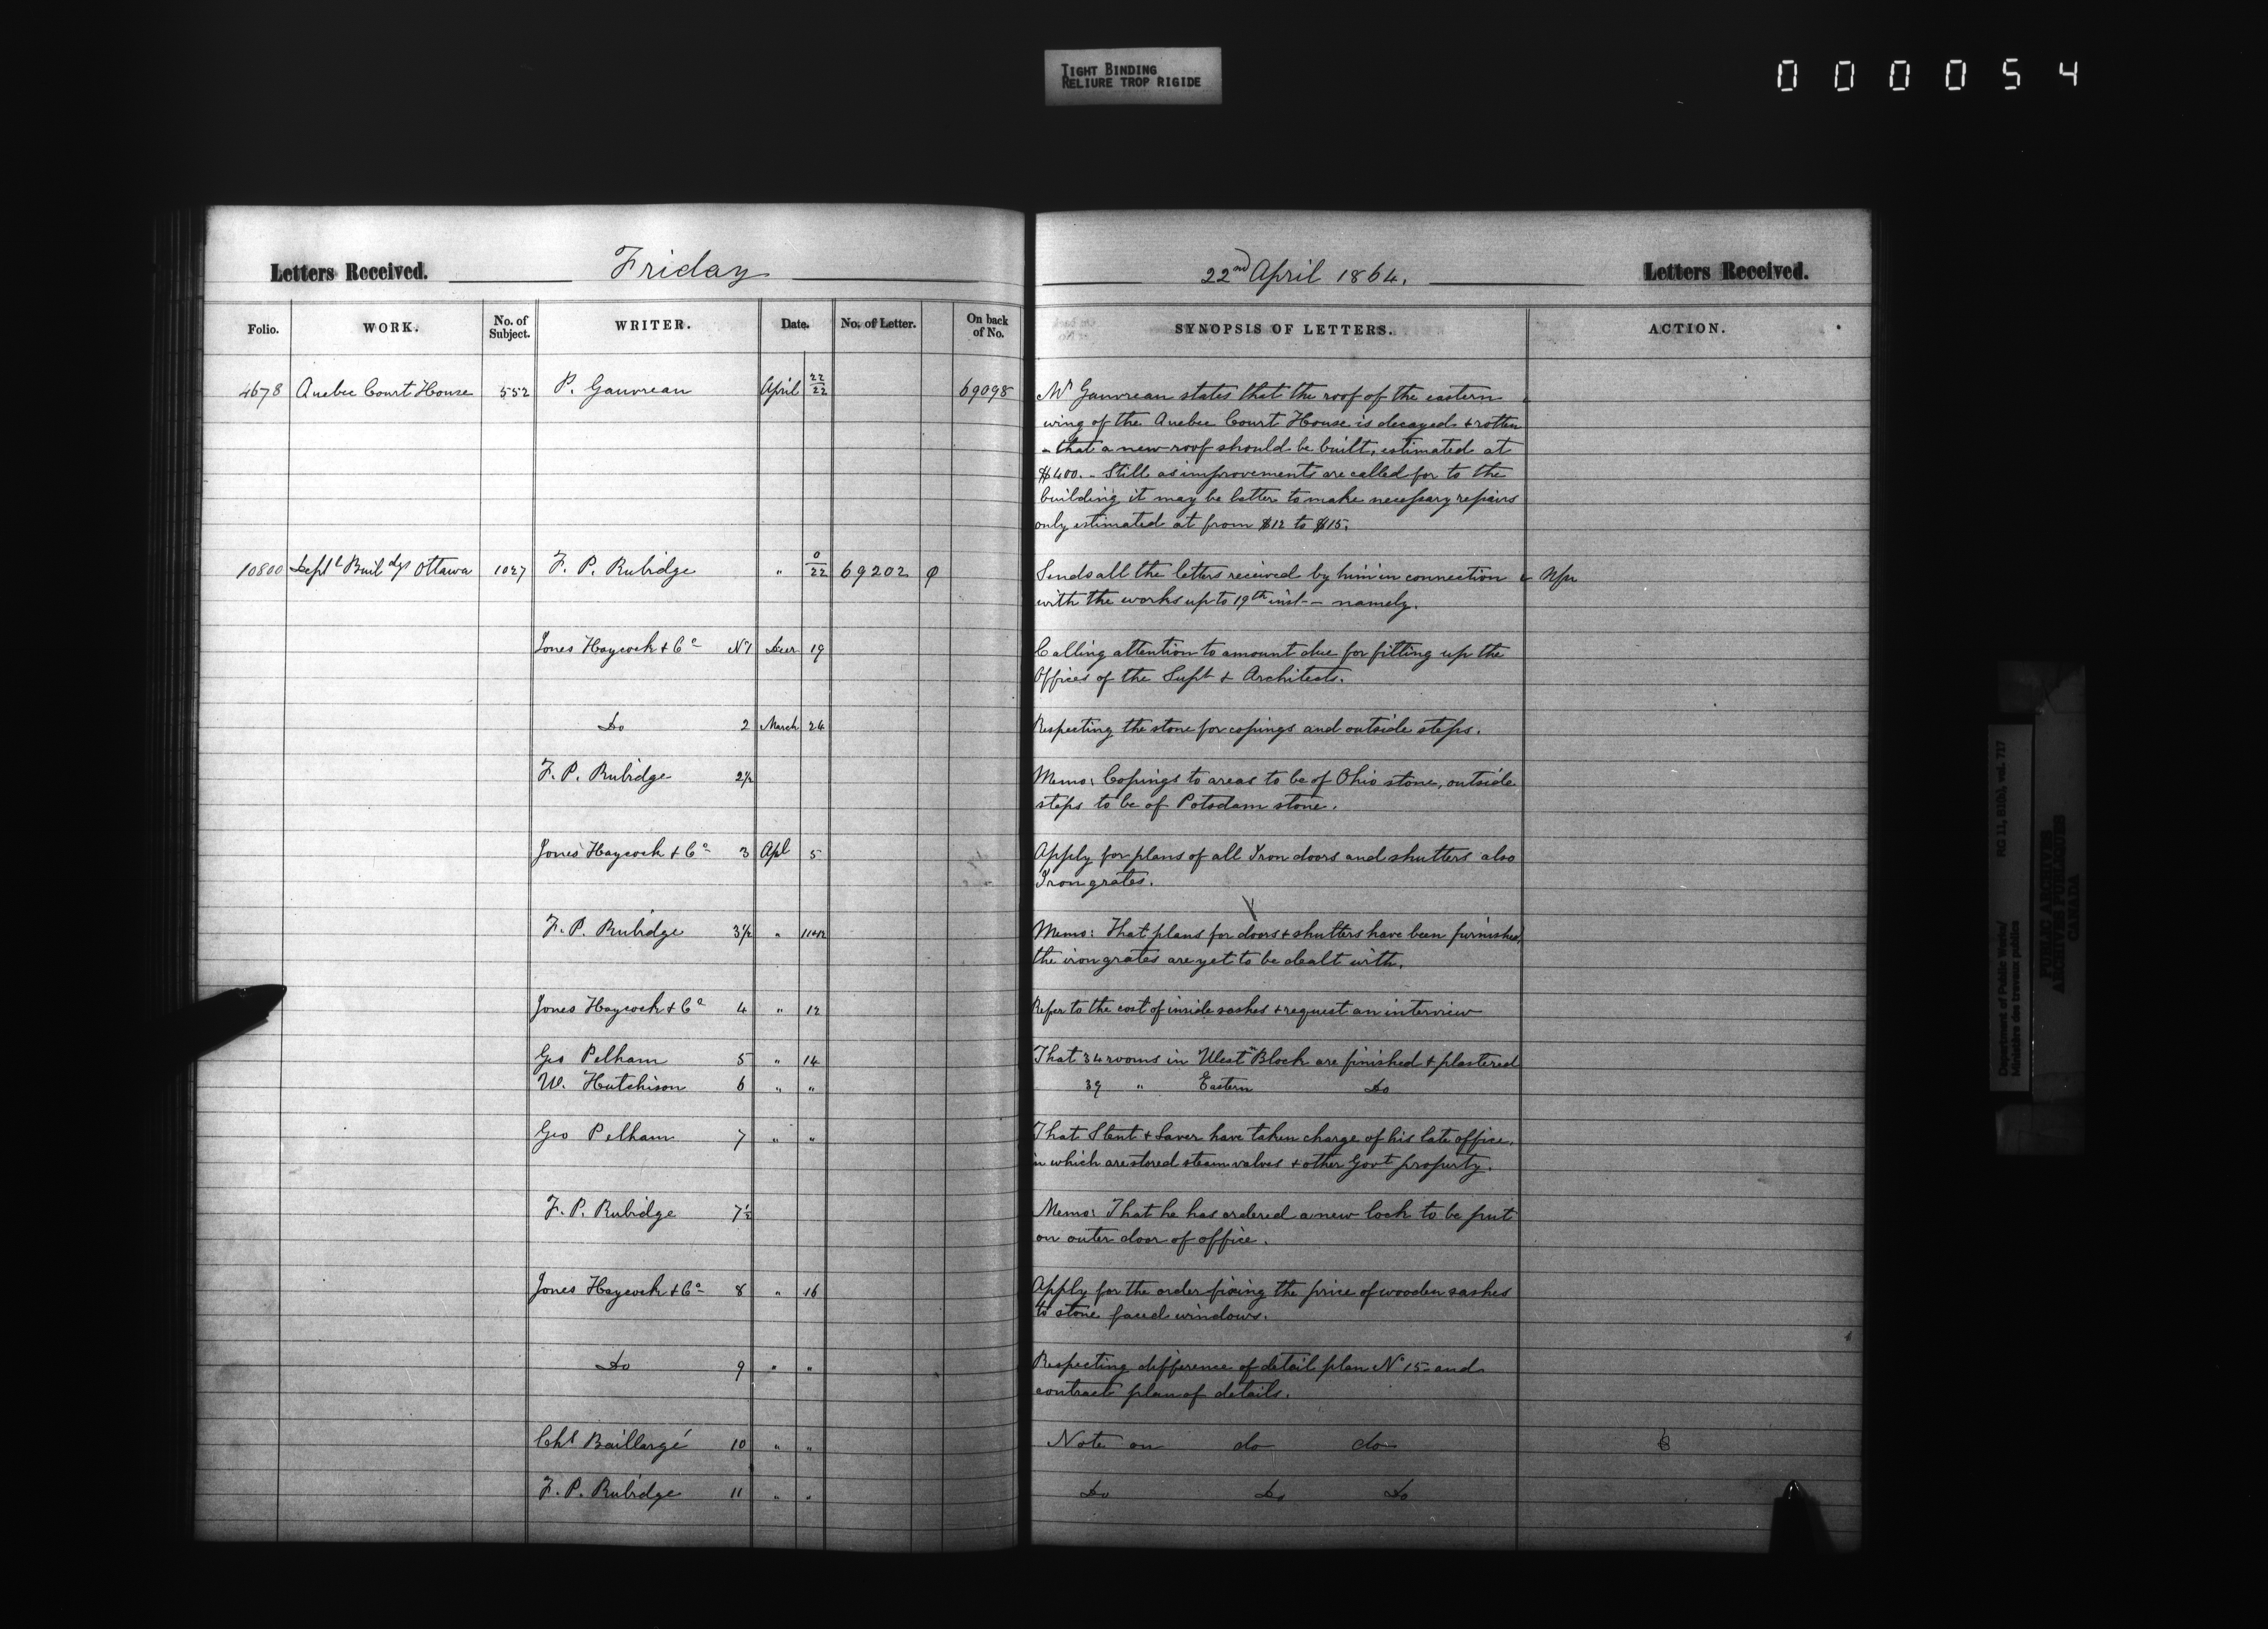 TIGHT BINDING
RELIURE TROP RIGIDE
000054
Letters Received. Friday
Folio. WORK. No. of Subject. WRITER. Date. No. of Letter. On back of No.
4678 Quebec Court House 552 P. Gauvreau April 22/22 69098
10800 Deptl Buildgs Ottawa 1027 F. P. Rubidge " 0/22 69202
Jones Haycock & Co No 1 Decr 19
Do 2 March 24
F. P. Rubidge 2½
Jones Haycock & Co 3 Apl 5
F. P. Rubidge 3½ "
Jones Haycock & Co 4 " 12
Geo Pelham 5 " 14
W. Hutchison 6 " "
Geo Pelham 7 " "
F. P. Rubidge 7½
Jones Haycock & Co 8 " 16
Do 9 " "
Chs Baillargé 10 " "
F. P. Rubidge 11 " "
22nd April 1864. Letters Received.
SYNOPSIS OF LETTERS. ACTION.
Mr Gauvreau states that the roof of the eastern
wing of the Quebec Court House is decayed & rotten
- that a new roof should be built, estimated at
$400. - Still as improvements are called for to the
building it may be better to make necessary repairs
only estimated at from $12 to $15.
Sends all the letters received by him in connection
with the works up to 19th inst - namely.
Calling attention to amount due for fitting up the
Offices of the Supt & Architects.
Respecting the stone for copings and outside steps.
Memo: Copings to areas to be of Ohio stone, outside
steps to be of Potsdam stone.
Apply for plans of all Iron doors and shutters also
Iron grates.
Memo: That plans for doors & shutters have been furnished,
the iron grates are yet to be dealt with.
Refer to the cost of inside sashes & request an interview
That 34 rooms in West "Block are finished & plastered
39 " Eastern Do
That Stent & Laver have taken charge of his late office,
in which are stored steam valves & other Govt property.
Memo: That he has ordered a new lock to be put
on outer door of office.
Apply for the order fixing the price of wooden sashes
to stone faced windows.
Respecting difference of detail plan No 15 and
contract plan of details.
Note on do do
Do Do Do
Department of Public works/ RG 11, B1(b), vol. 717
Ministère des travaux publics
PUBLIC ARCHIVES
ARCHIVES PUBLIQUES
CANADA